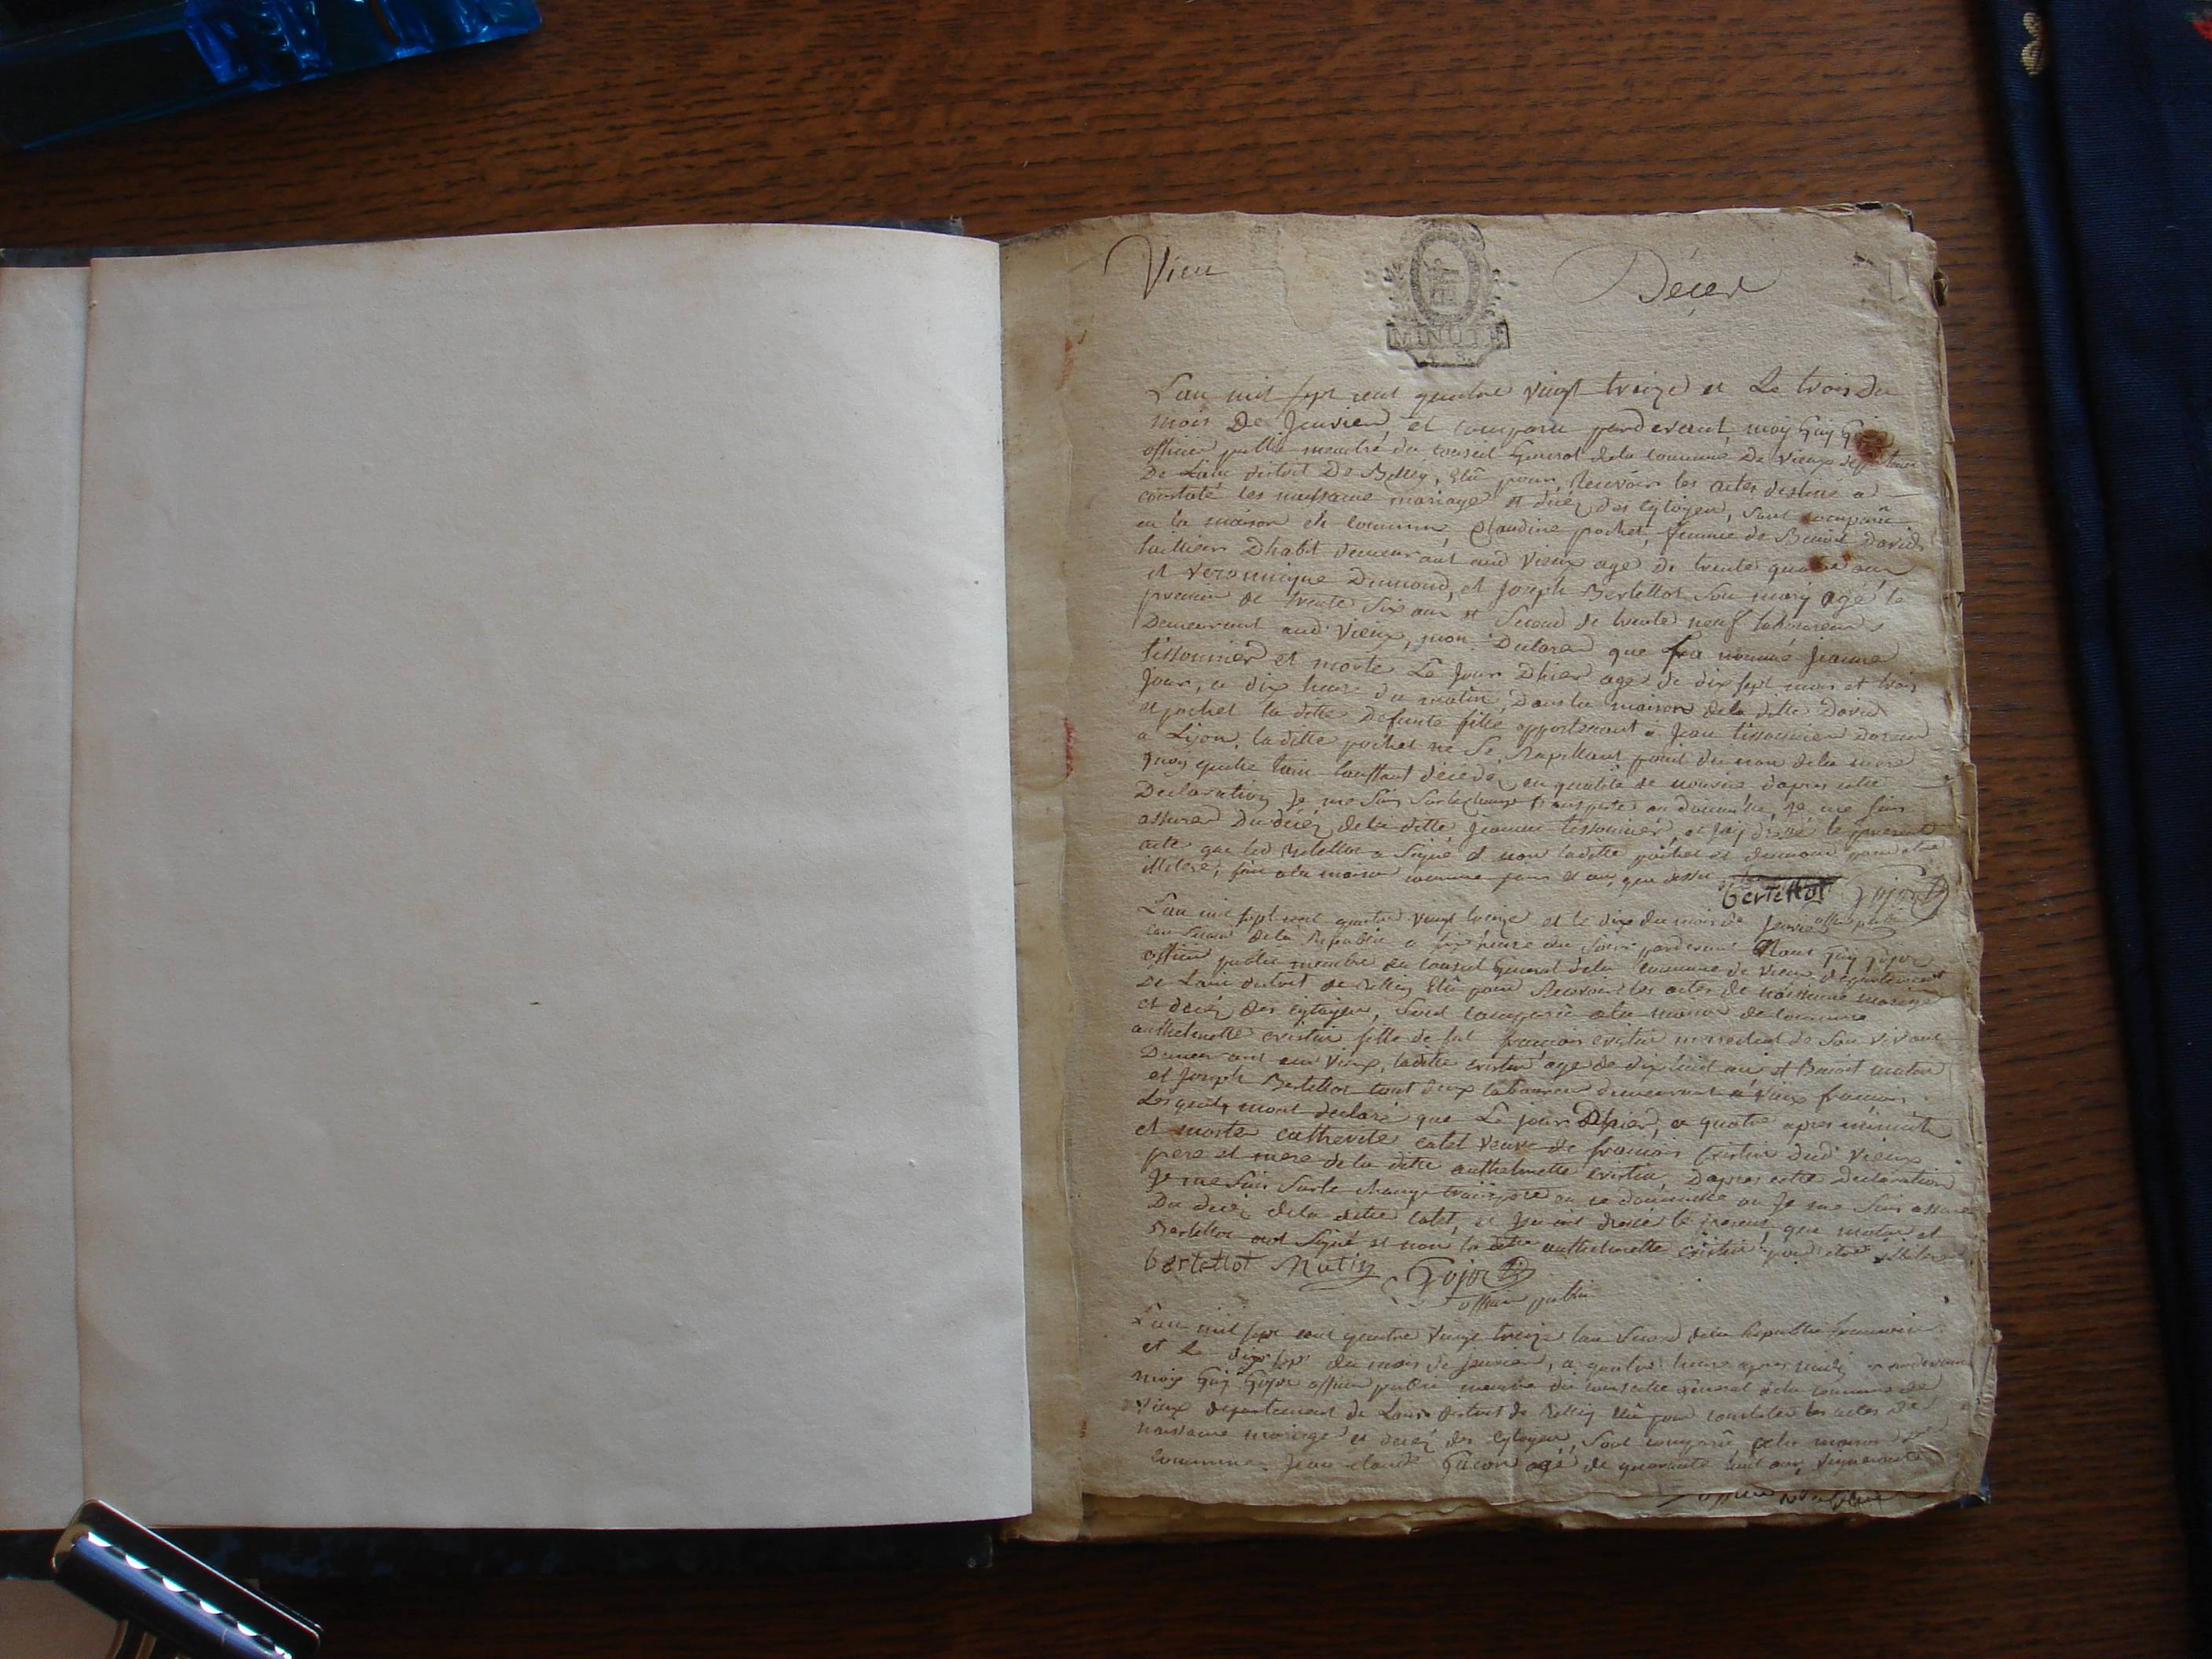 Vieu
Décès
MINUTE
4. S.
L'an mil sept cent quatre vingt treize et Le trois du
mois De Janvier, et comparu pardevant moy Guy
officier public membre du conseil General dela commune De Vieux
De Lain district De Belley, Elû pour Recevoir les actes destiné a
constaté les naissance mariage et décéz des Cytoyen, sont comparû
en la maison de commune, Claudine pochet, femme de Benoit David
taillieur Dhabit demeurant aud Vieux age de trente quatre ans
et Veronnique Dumond, et Joseph Bertellot Son mary agé le
premier de trente six ans et Second de trente neuf laboureurs
Demeurant aud Vieux, mon Declarer que nommé Jeanne
tissonnier et morte Le Jour Dhier age de dix sept mois et trois
Jour, a dix heure du matin, Dans la maison dela ditte David
et pochet la ditte Defunte fille appartenant a Jean tissonnier
a Lyon, la ditte pochet ne Se Rapellant point du nom dela mere
en qualité de nourice, dapres cette
Declaration Je me Suis Surlechamp transporté au domicille, Je me Suis
assurer Du décéz dela ditte Jeanne tissonnier, et Jaÿ dressé le present
acte que led Bertellot a Signé et non laditte pochet et dumond pour etre
illiteré, fait ala maison commune jour et an que dessus
bertellot Gojoz
officier public
L'an mil sept cent quatre vingt treize et le dix du mois de Janvier
lan Second dela Republic a six heure du Soir pardevant Nous Guy Gojoz
officier public membre du conseil General dela commune de Vieux departement
De Lain district de Belley Elû pour Recevoir les actes de naissance mariage
et décéz des cytoyen, sont comparue ala maison de commune
anthelmette cristin fille de fut françois cristin de Son vivant
Demeurant aud Vieux, laditte cristin age de dix huit ans et Benoit mutin
et Joseph Bertellot tout deux laboureur demeurant a Vieux
Lesquels mont declaré que Le jour Dhier, a quatre apres minuit
et morte catherine catet veuve de françois Cristin dud Vieux
pere et mere dela ditte anthelmette cristin, Dapres cette Declaration
Je me Suis Surle champ transporté en ce domicille ou Je me Suis assuré
Du décéz dela ditte catet, et Jai dressé le present, que mutin et
Bertellot ont Signé et non la ditte anthelmette cristin pour etre illiteré
bertellot Mutin Gojoz
officier public
L'an mil sept cent quatre vingt treize lan Second dela Republic francoise
et le dix sept du mois de janvier, a quatre heure apres midy pardevant
moy Guy Gojoz officier public membre du conseille General dela commune de
Vieux departement de Lain district de Belley Elû pour constater les actes de
naissance mariage et décéz des Cytoyen, sont comparû ala maison de
commune Jean claude Gacon agé de quarante huit ans, vigneront
officier public